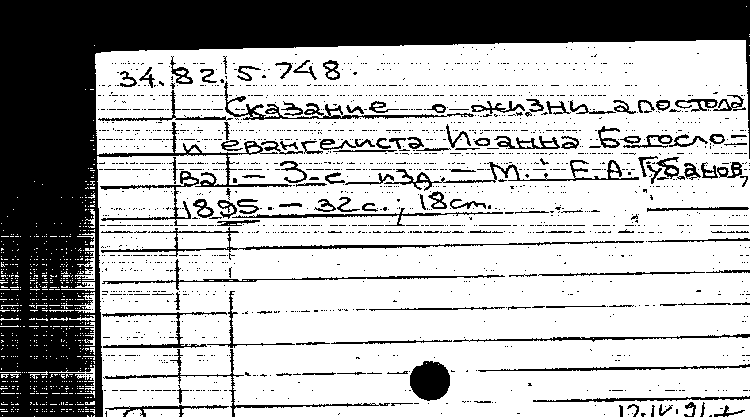 34.82.5.748.
Сказание о жизни апостола
и евангелиста Иоанна Богосло=
ва. — 3-е изд. — М. : Е.А. Губанов,
1895. — 32 с. ; 18 см.